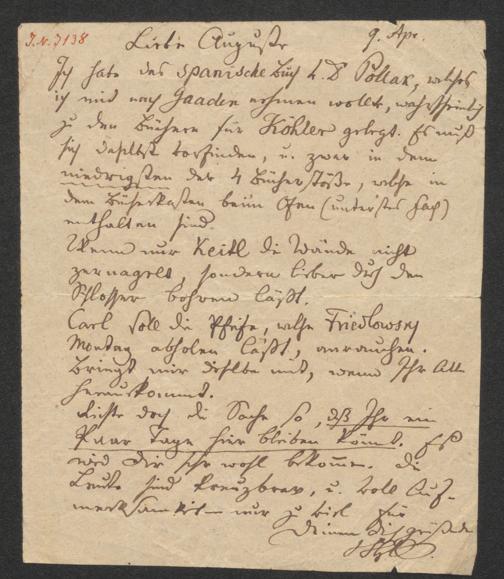 J.N. 3138
Liebe Auguste
9. Apr.
Ich habe das spanische Buch L. D Pollak, welches
ich mir nach Gaaden nehmen wollte, wahrscheinlich
zu den Büchern für Köhler gelegt. Es muß
sich daselbst vorfinden, u. zwar in dem
niedrigsten der 4 Bücherstöße, welche in
dem Bücherkasten beim Ofen (unterstes Fach)
enthalten sind.
Wenn nur Keitl die Wände nicht
zernagelt, sondern lieber durch den
Schlosser bohren läßt.
Carl soll die Pfeife, welche Friedlowsky
Montag abholen läßt, anrauchen.
Bringt mir dieselbe mit, wenn Ihr Alle
herauskommt.
Richte doch die Sache so, daß Ihr ein
Paar Tage hier bleiben könnt. Es
wird Dir sehr wohl bekommen. Die
Leute sind kreuzbrav, u. voll Auf-
merksamkeit – nur zu viel für
Deinen Dich grüßenden